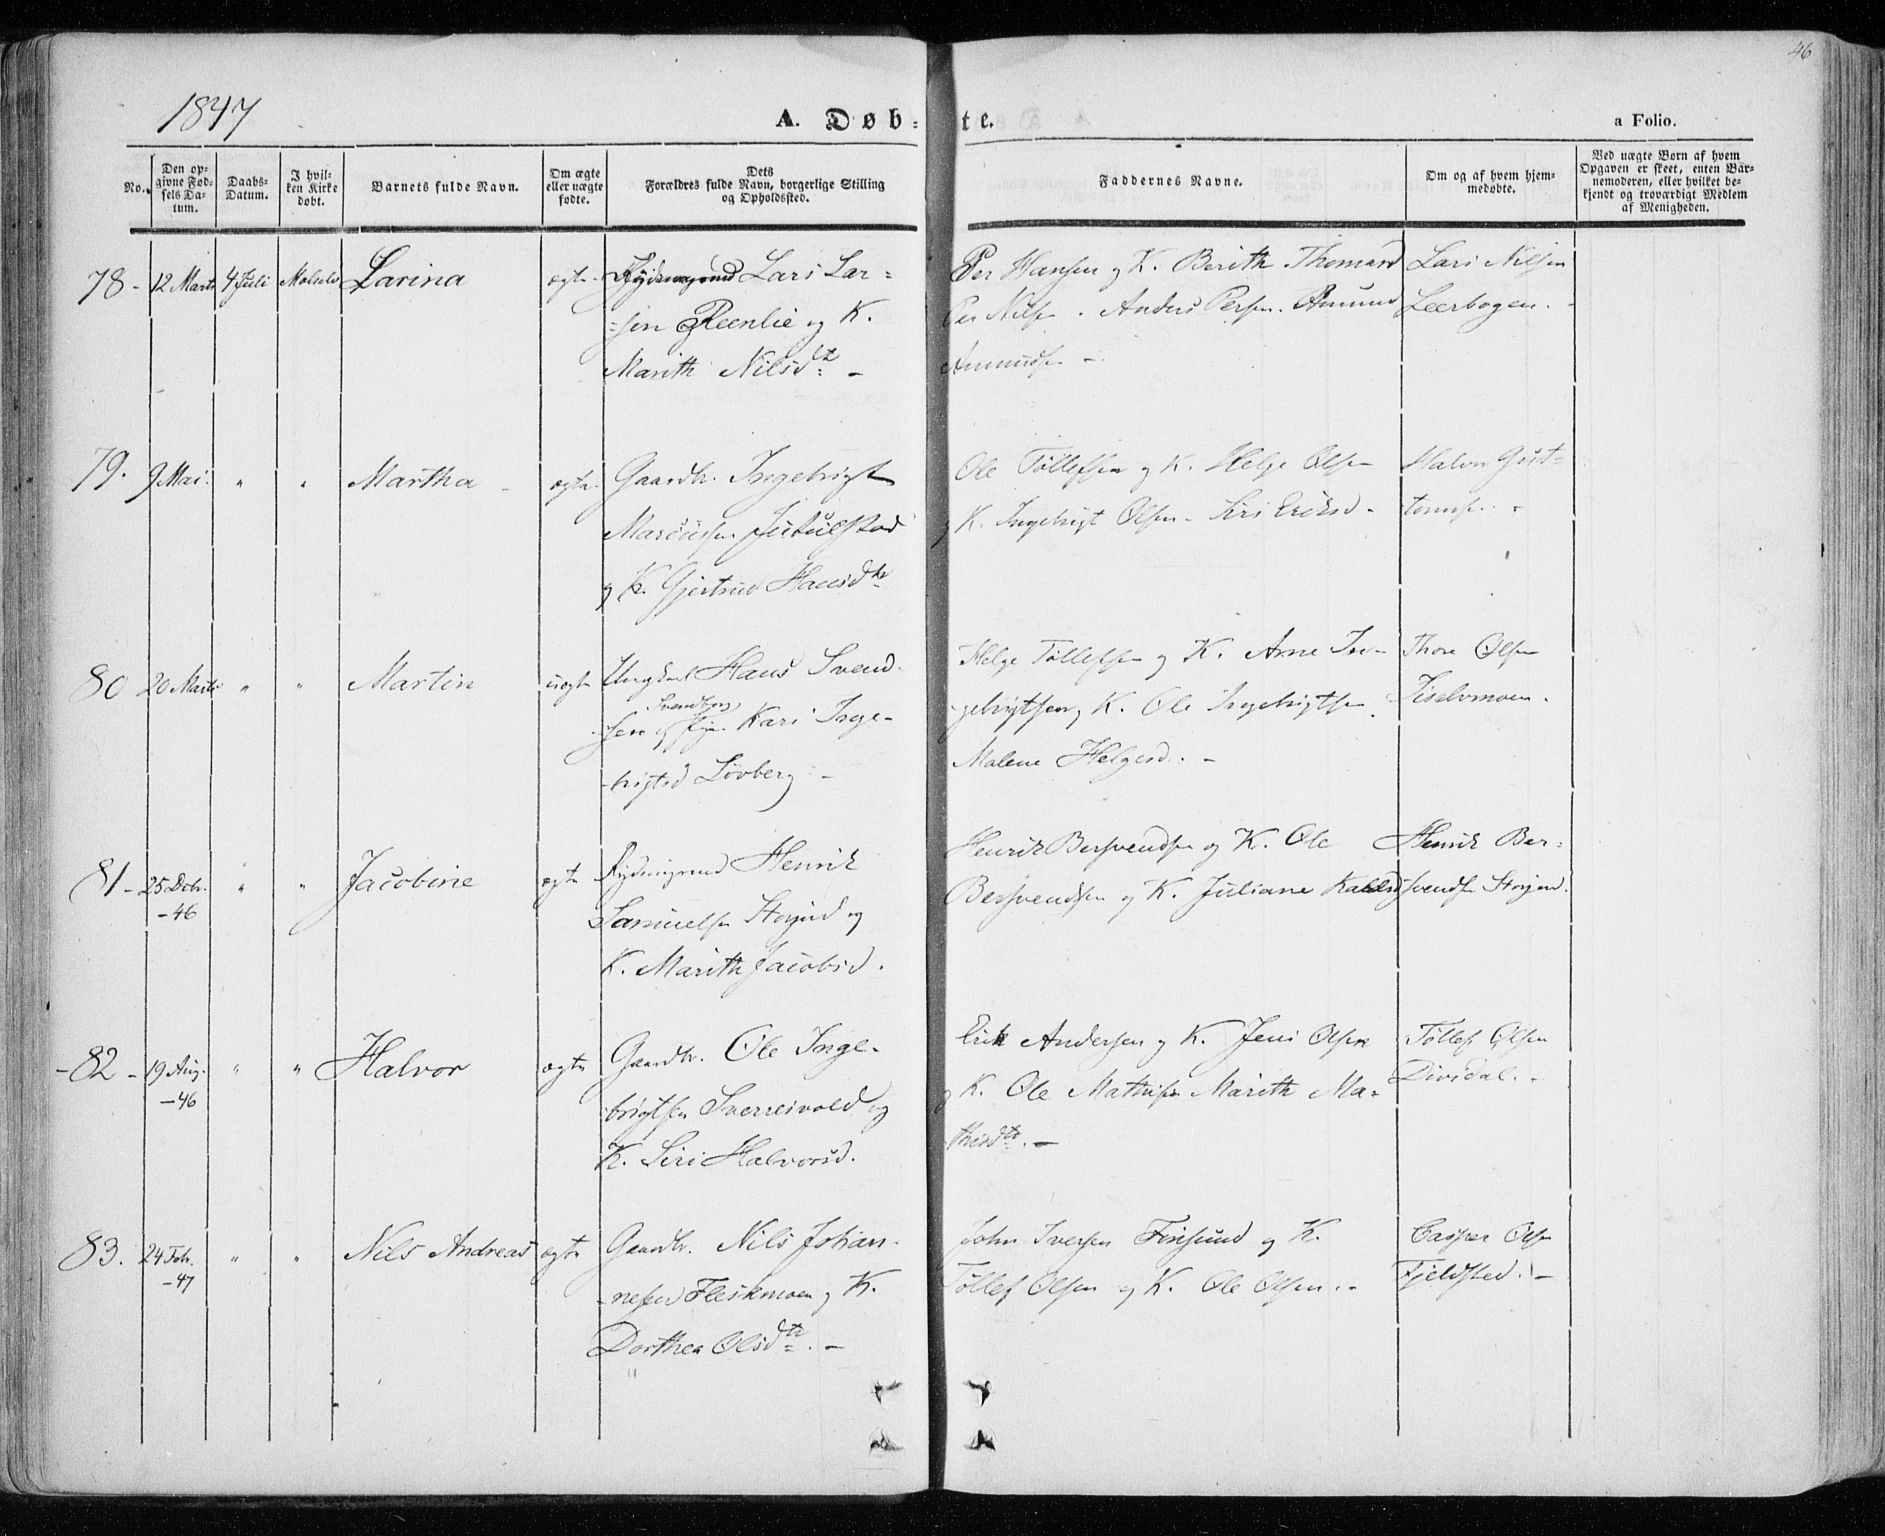 46
1847
A. Døb-te.
a Folio.
No.
Den op-
givne Fød-
sels Da-
tum.
Daabs-
Datum.
I hvil-
ken Kirke
døbt.
Barnets fulde Navn.
Om ægte
eller uægte
fødte.
Dets
Forældres fulde Navn, borgerlige Stilling
og Opholdssted.
Faddernes Navne.
Om og af hvem hjem-
medøbte.
Ved uægte Børn af hvem
Opgaven er skeet, enten Bar-
nemoderen, eller hvilket be-
kjendt og troværdigt Medlem
af Menigheden.
78 - 12 Marts 4 Juli Molselv Larina ægte Rydningsmd Lars Lar=
=sen Reenlie og K.
Marith Nilsdt -
Per Hansen og K. Berith Thomasd
Per Nilsen . Anders Persen. Amund
Amundsen -
Lars Nilsen
Leerbogen. -
79. 9 Mai " " Martha - ægte Gaardbr. Ingebrigt
Marcussen Jutulstad
og K. Gjertrud Hansdtr
Ole Tøllefsen og K. Helge Olsen
og K. Ingebrigt Olsen - Siri Eriksd -
Halvor Gut-
tormsen -
80 20 Marts " " Martin uægte Ungkarl Hans Svend-
Svendborg
sen og Pige Kari Inge-
brigtsd Løvberg -
Helge Tøllefsen og K. Arne In-
gebrigtsen og K. Ole Ingebrigtsen
Malene Helgesd. -
Thore Olsen
81 - 25 Dcbr. " " Jacobine ægte Rydningsmd Henrik
-46
Samuelsen Storjord og
K. Marith Jacobsd.
Henrik Bersvendsen og K. Ole
Bersvendsen og K. Juliane
Henrik Ber=
svendsen Storjord.
- 82 - 19 Aug. " " Halvor ægte Gaardbr. Ole Inge-
-46
brigtsen Sverreivold og
K. Siri Halvorsd.
Erik Andersen og K. Jens Olsen
og K. Ole Mathisen Marith Ma-
thisdtr. -
Tøllef Olsen
Divsdal. -
83. 24 Febr. " " Nils Andreas ægte Gaardbr. Nils Johan-
-47
nesen Fleskmoen og K.
Dorthea Olsdtr. -
John Iversen Finsund og K.
Tøllef Olsen og K. Ole Olsen. -
Casper Olsen
Fjeldsted. -